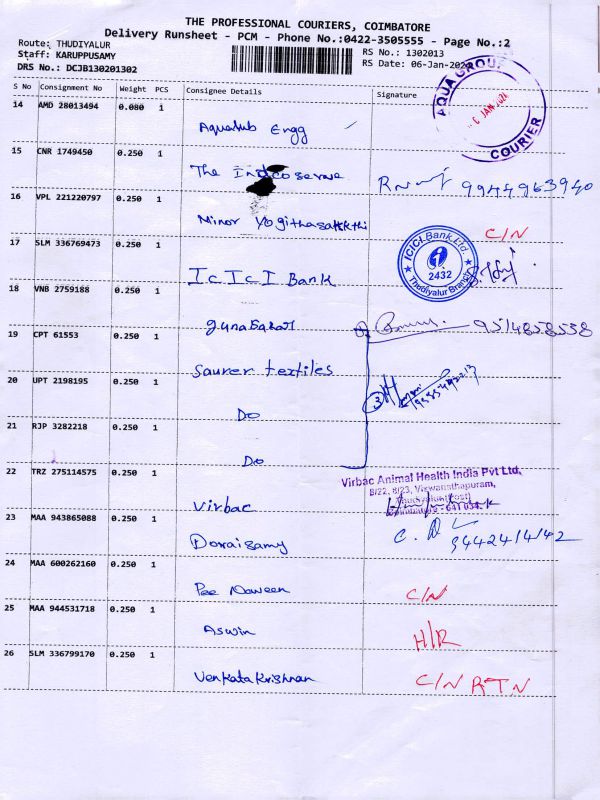 THE PROFESSIONAL COURIERS, COIMBATORE
Delivery Runsheet - PCM - Phone No.:0422-3505555 - Page No.:2
Route: THUDIYALUR
Staff: KARUPPUSAMY
DRS No.: DCJB130201302
RS No.: 1302013
RS Date: 06-Jan-202
AQUA GROUP
6 JAN 2026
COURIER
S No Consignment No Weight PCS Consignee Details Signature
14 AMD 28013494 0.080 1
Aquasub Engg
15 CNR 1749450 0.250 1
The Indcoserve
9944963940
16 VPL 221220797 0.250 1
Minor Yogithasakkthi
C/N
17 SLM 336769473 0.250 1
ICICI Bank
ICICI Bank Ltd
2432
Thudiyalur Branch
18 VNB 2759188 0.250 1
gunasekar
9514858558
19 CPT 61553 0.250 1
Saurer textiles
20 UPT 2198195 0.250 1
Do
3
21 RJP 3282218 0.250 1
Do
22 TRZ 275114575 0.250 1
Virbac
Virbac Animal Health India Pvt Ltd,
8/22, 8/23, Viswanathapuram,
Thudiyalur(Post)
Coimbatore - 641 034.
23 MAA 943865088 0.250 1
Doraisamy
24 MAA 600262160 0.250 1
Pee Naveen
C/N
25 MAA 944531718 0.250 1
Aswin
H/R
26 SLM 336799170 0.250 1
Venkatakrishnan
C/N RTN